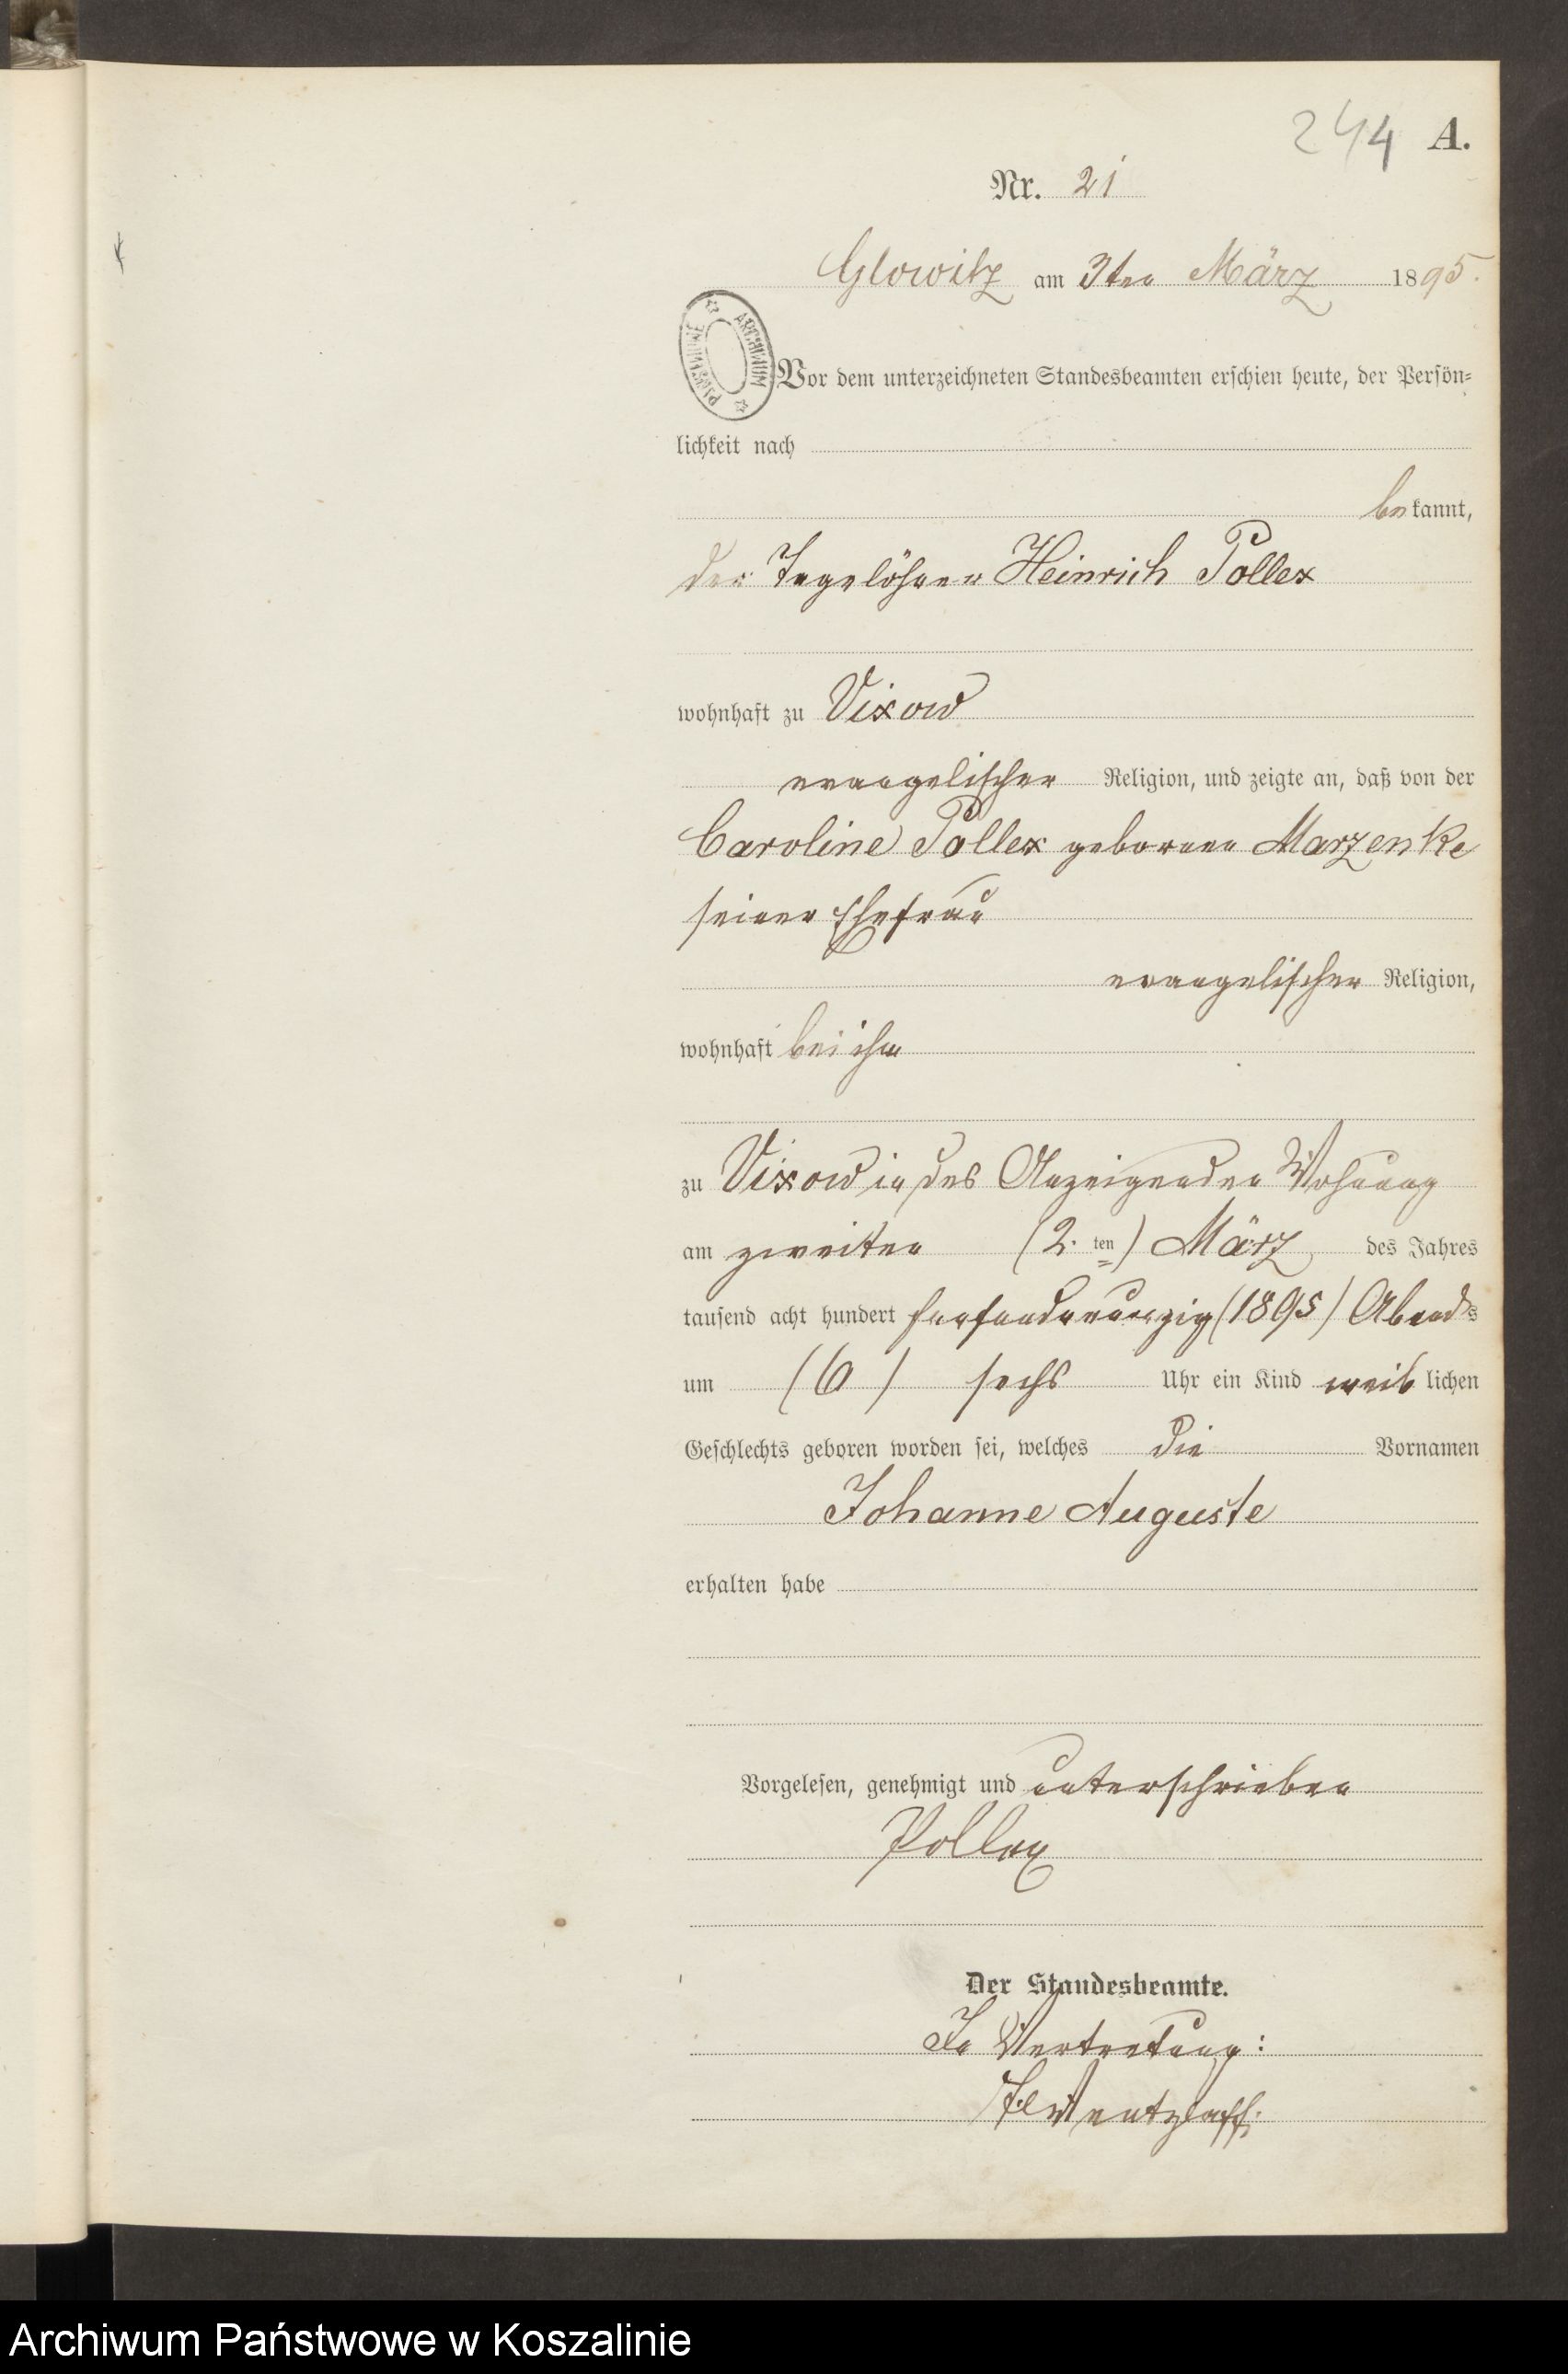 244 A.
Nr. 21
Glowitz am 3ten März 1895.
ARCHIWUM PAŃSTWOWE
Vor dem unterzeichneten Standesbeamten erschien heute, der Persön-
lichkeit nach
bekannt,
der Tagelöhner Heinrich Pollex
wohnhaft zu Vixow
evangelischer Religion, und zeigte an, daß von der
Caroline Pollex geborenen Marzenke
seiner Ehefrau
evangelischer Religion,
wohnhaft bei ihm
zu Vixow in des Anzeigenden Wohnung
am zweiten (2. ten) März des Jahres
tausend acht hundert fünfundneunzig (1895) Abends
um (6) sechs Uhr ein Kind weiblichen
Geschlechts geboren worden sei, welches die Vornamen
Johanne Auguste
erhalten habe
Vorgelesen, genehmigt und unterschrieben
Pollex
Der Standesbeamte.
In Vertretung:
Wentzlaff.
Archiwum Państwowe w Koszalinie